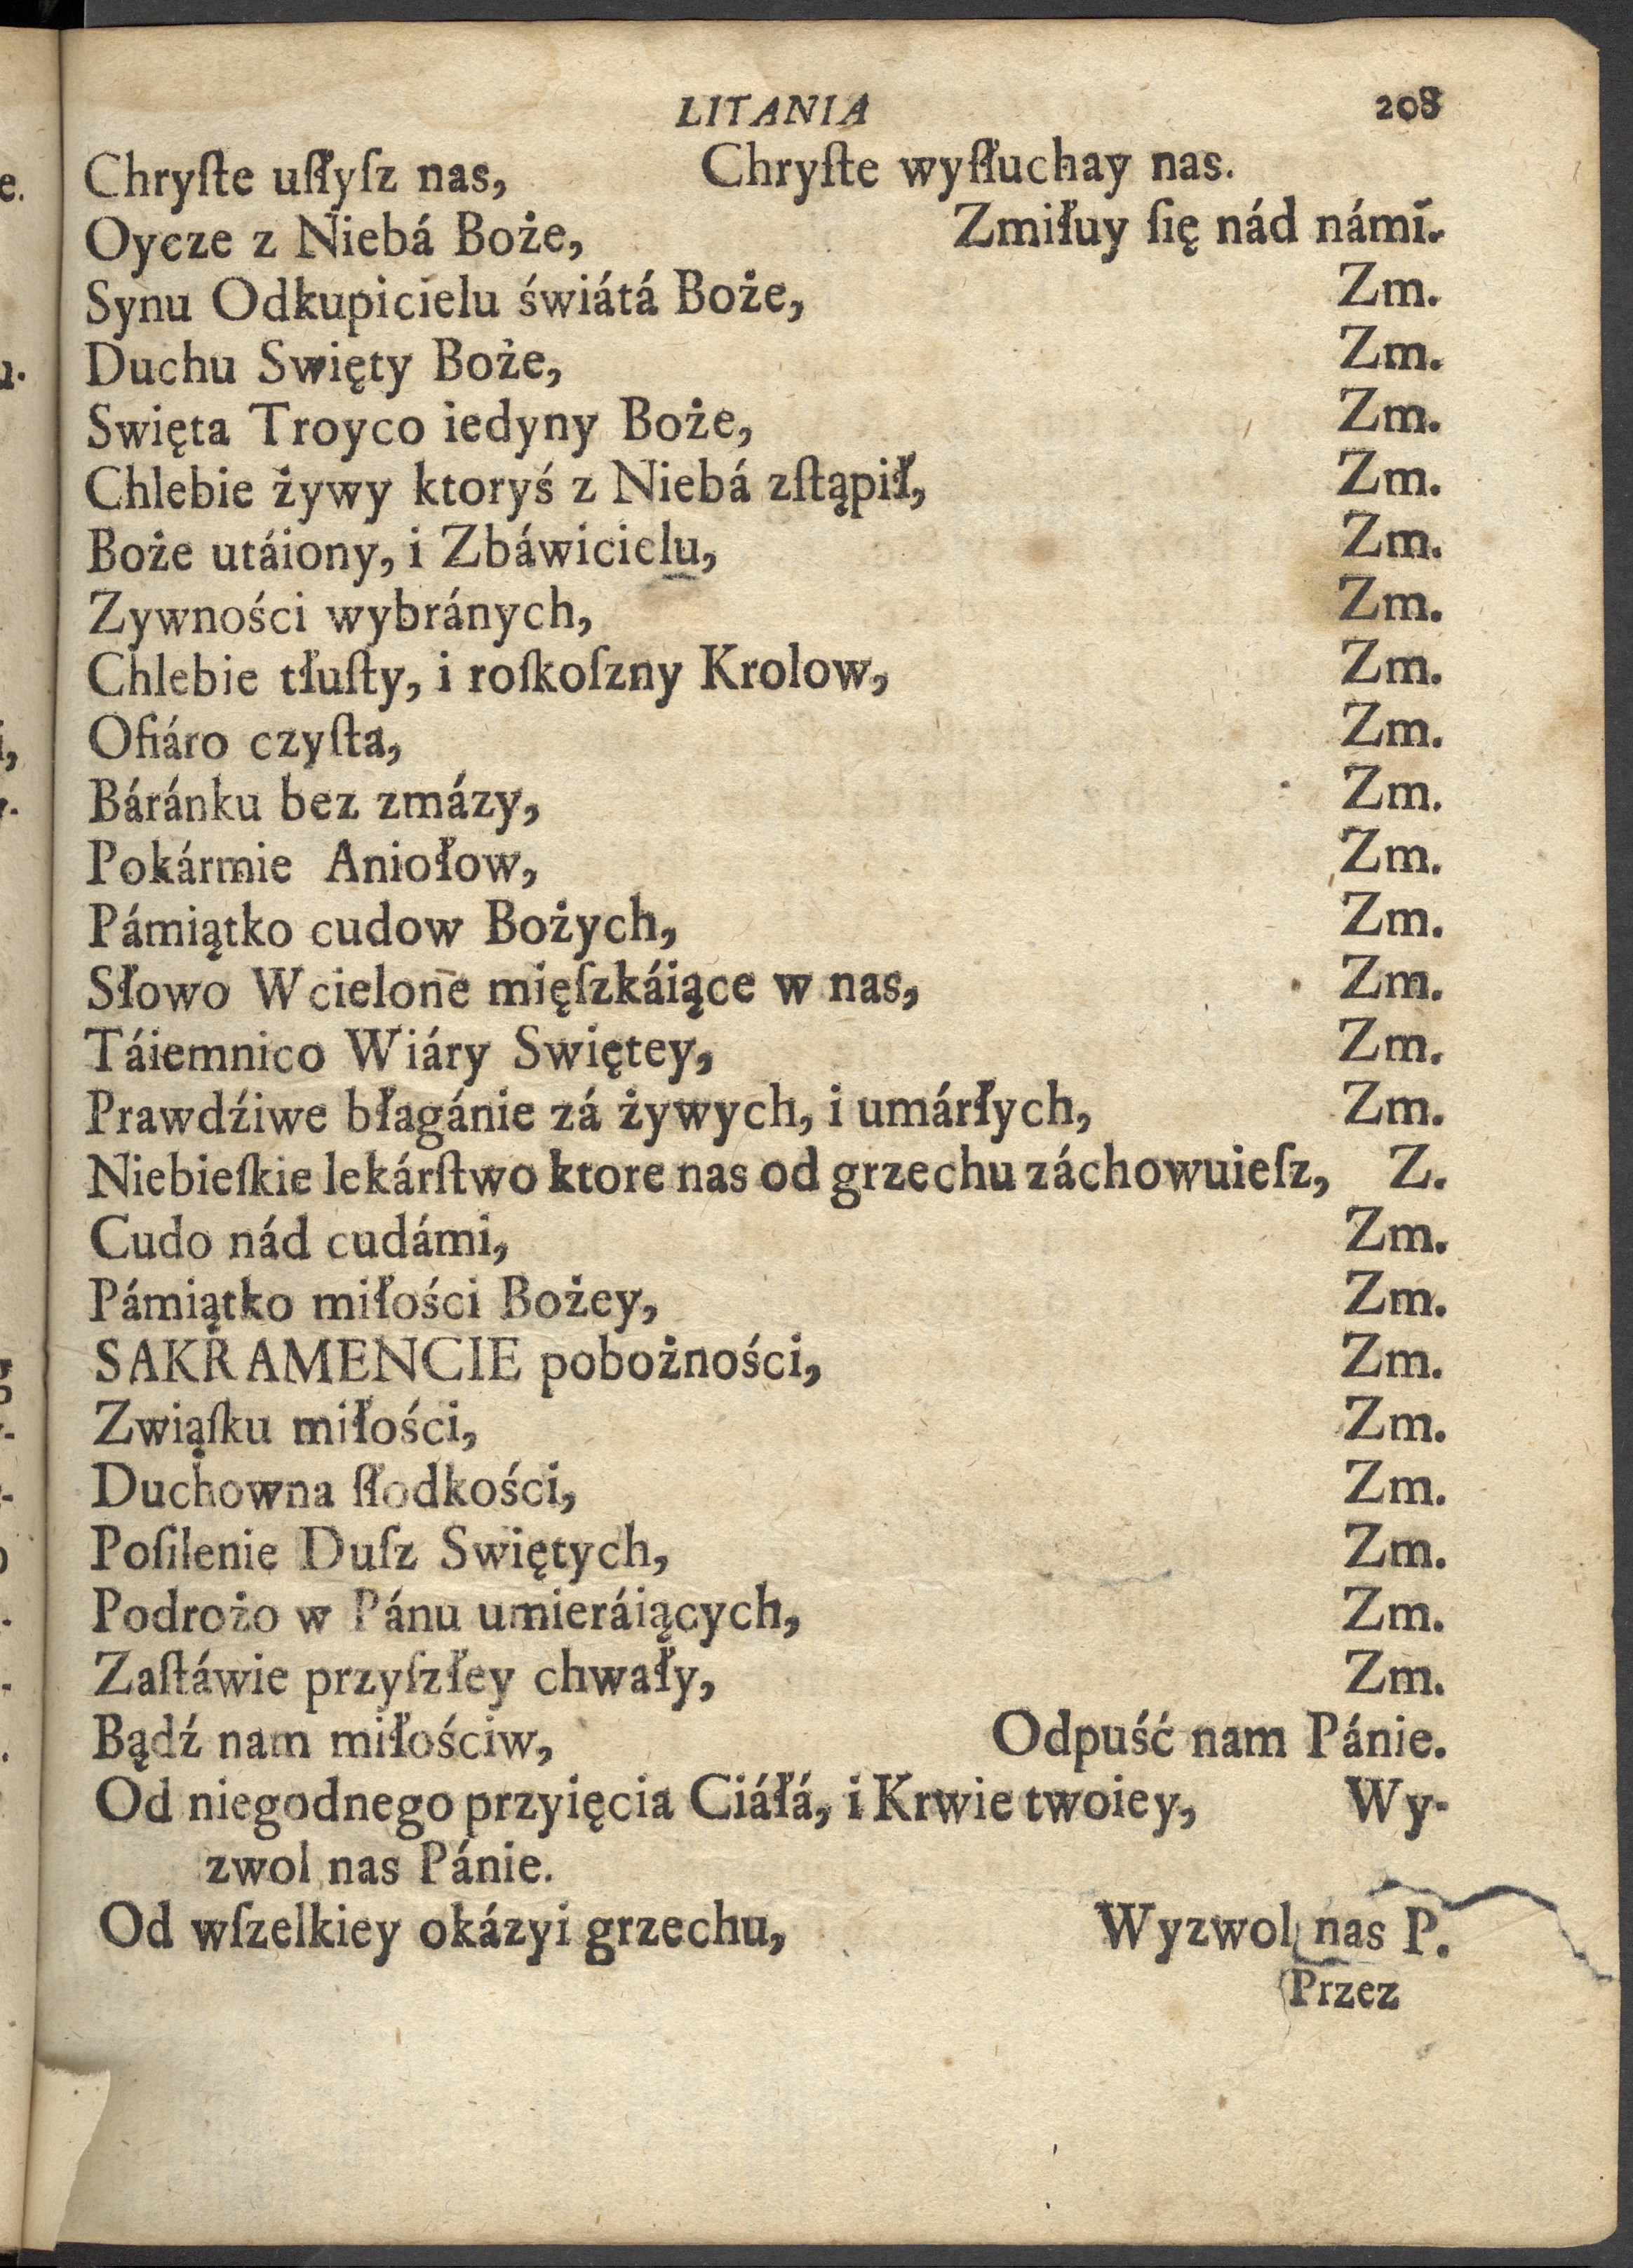 LITANIA 208
Chryſte uſłyſz nas, Chryſte wyſłuchay nas.
Oycze z Niebá Boże, Zmiłuy ſię nád námi.
Synu Odkupicielu świátá Boże, Zm.
Duchu Swięty Boże, Zm.
Swięta Troyco iedyny Boże, Zm.
Chlebie żywy ktoryś z Niebá zſtąpił, Zm.
Boże utáiony, i Zbáwicielu, Zm.
Zywności wybránych, Zm.
Chlebie tłuſty, i roſkoſzny Krolow, Zm.
Ofiáro czyſta, Zm.
Báránku bez zmázy, Zm.
Pokármie Aniołow, Zm.
Pámiątko cudow Bożych, Zm.
Słowo Wcielone mięſzkáiące w nas, Zm.
Táiemnico Wiáry Swiętey, Zm.
Prawdźiwe błagánie zá żywych, i umárłych, Zm.
Niebieſkie lekárſtwo ktore nas od grzechu záchowuieſz, Z.
Cudo nád cudámi, Zm.
Pámiątko miłości Bożey, Zm.
SAKRAMENCIE pobożności, Zm.
Związku miłości, Zm.
Duchowna ſłodkości, Zm.
Poſilenie Duſz Swiętych, Zm.
Podrożo w Pánu umieráiących, Zm.
Zaſtáwie przyſzłey chwały, Zm.
Bądź nam miłościw, Odpuść nam Pánie.
Od niegodnego przyięcia Ciáłá, i Krwie twoiey, Wy-
zwol nas Pánie.
Od wſzelkiey okázyi grzechu, Wyzwol nas P.
Przez